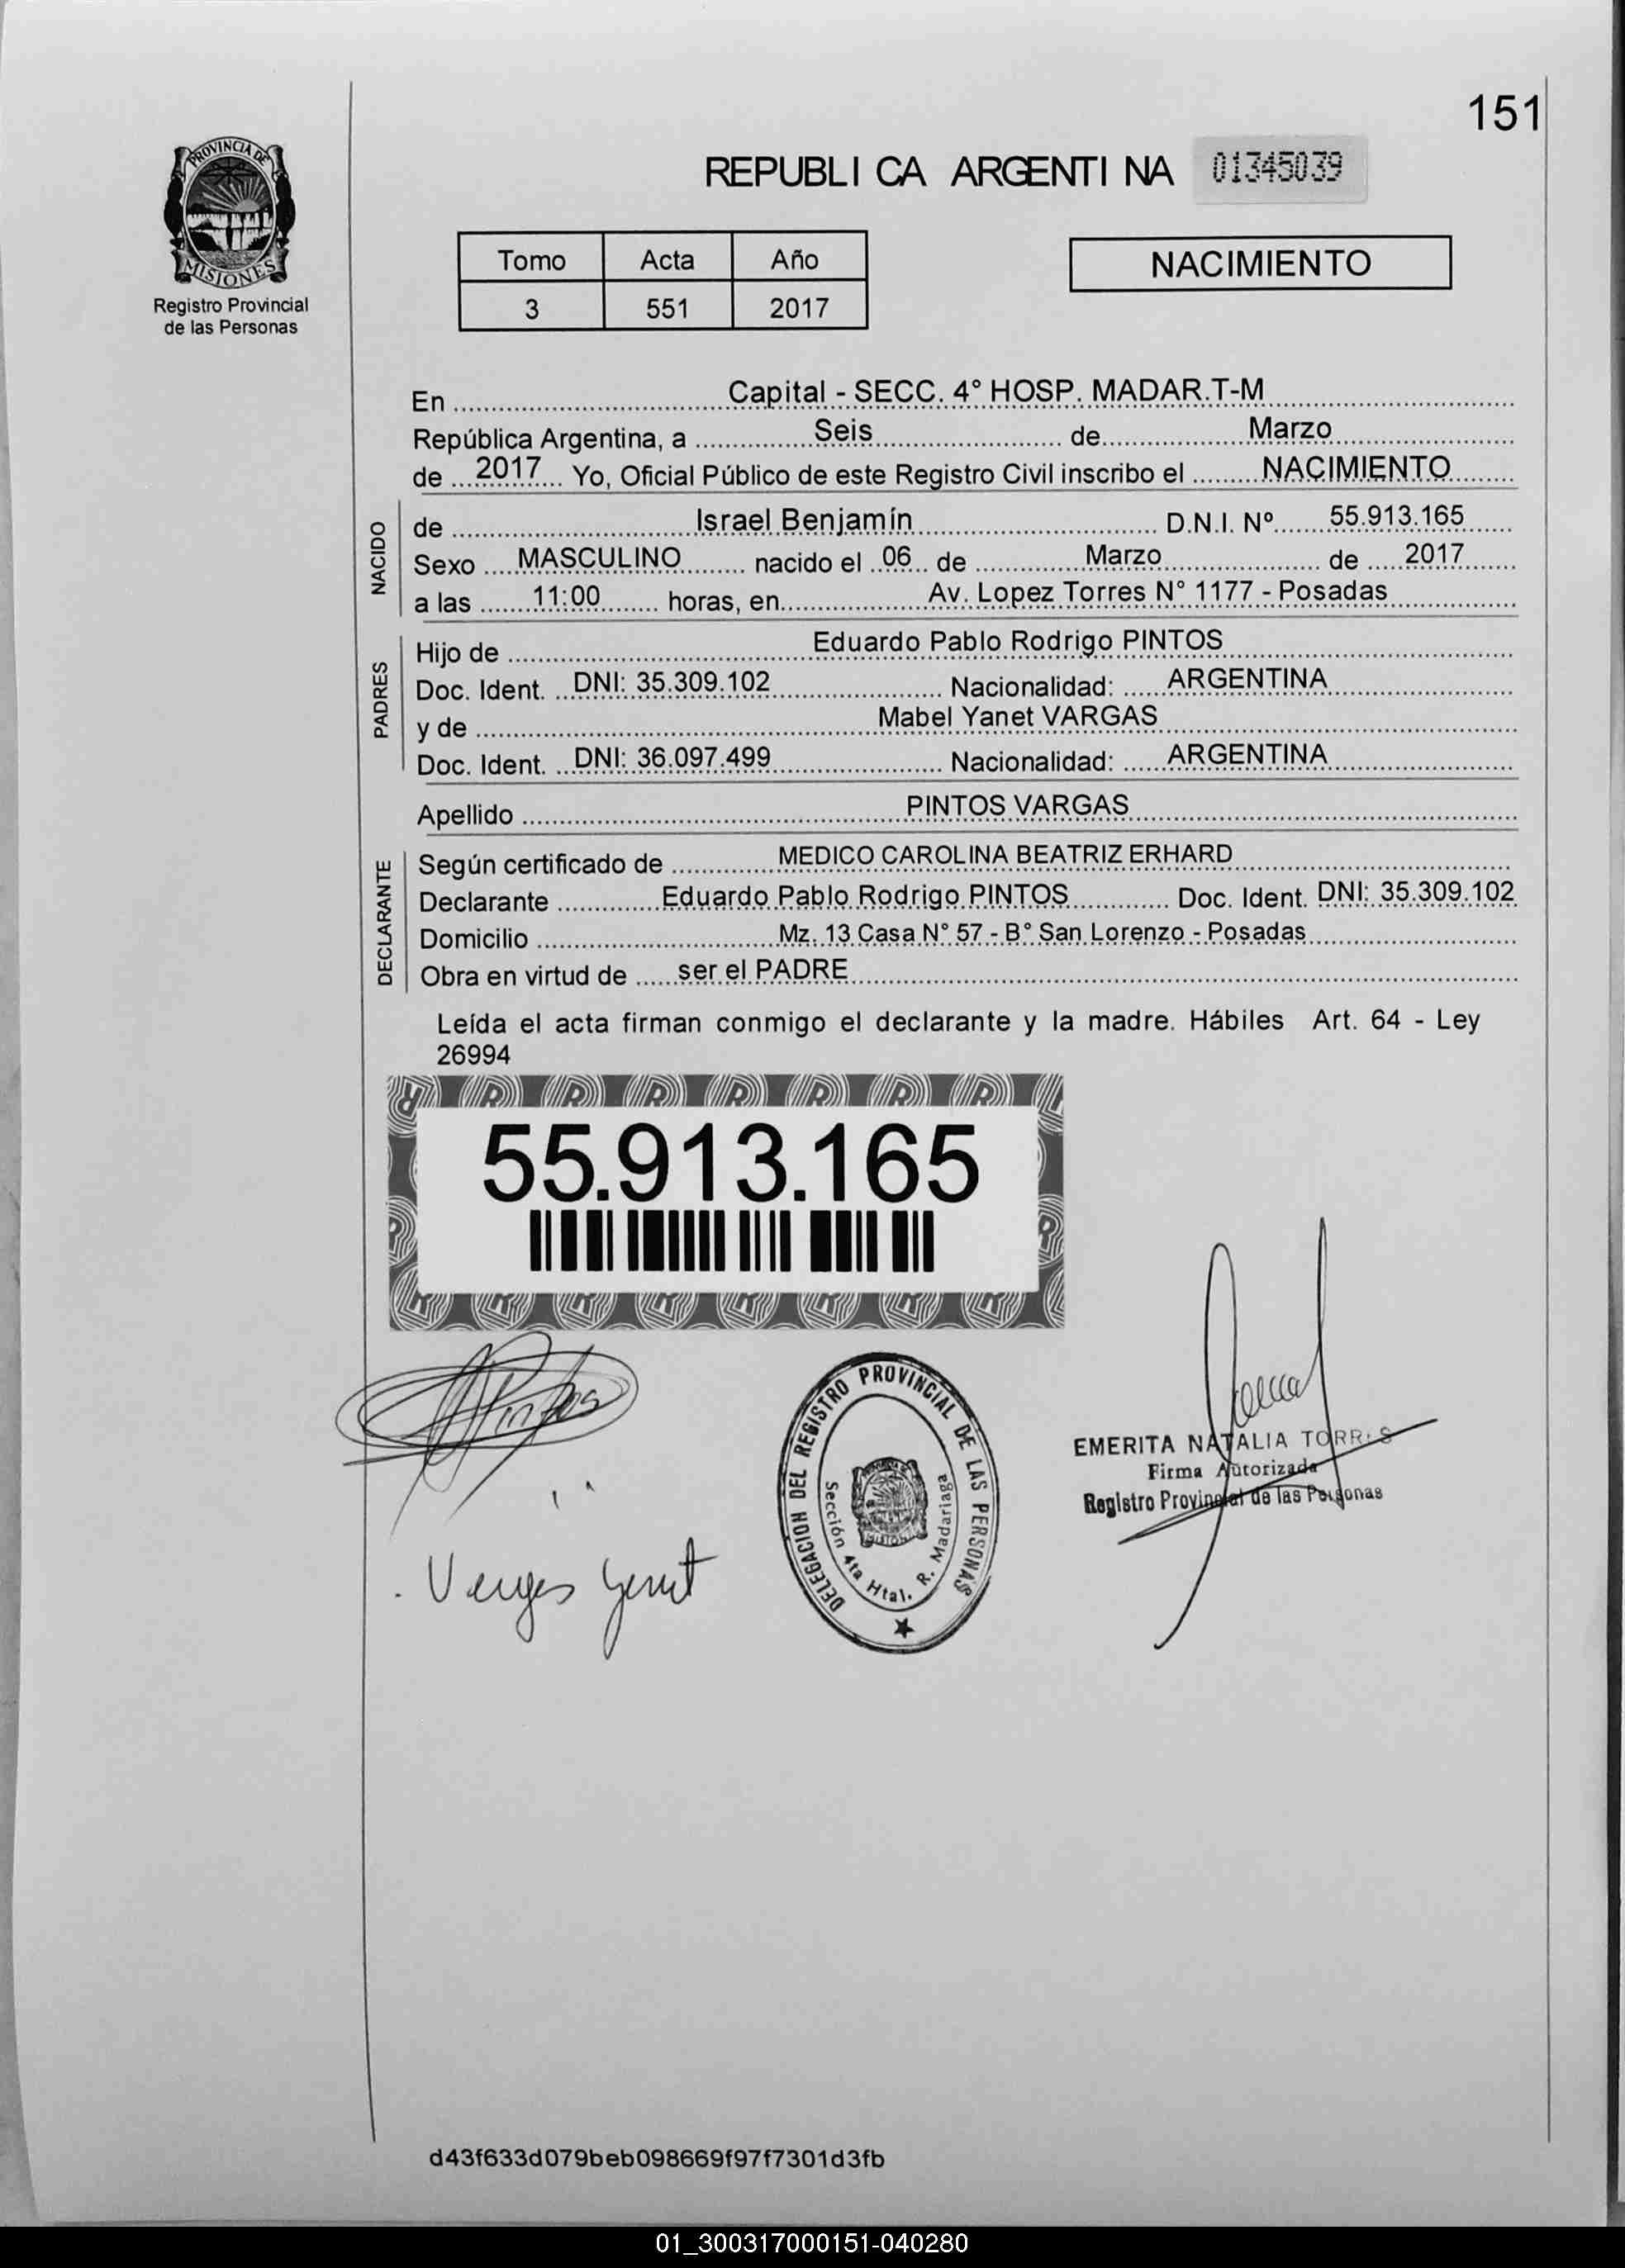 151
PROVINCIA DE
MISIONES
Registro Provincial
de las Personas
REPUBLICA ARGENTINA 01345039
Tomo Acta Año
3 551 2017
NACIMIENTO
En Capital - SECC. 4° HOSP. MADAR.T-M
República Argentina, a Seis de Marzo
de 2017 Yo, Oficial Público de este Registro Civil inscribo el NACIMIENTO
NACIDO
de Israel Benjamín D.N.I. Nº 55.913.165
Sexo MASCULINO nacido el 06 de Marzo de 2017
a las 11:00 horas, en Av. Lopez Torres N° 1177 - Posadas
PADRES
Hijo de Eduardo Pablo Rodrigo PINTOS
Doc. Ident. DNI: 35.309.102 Nacionalidad: ARGENTINA
y de Mabel Yanet VARGAS
Doc. Ident. DNI: 36.097.499 Nacionalidad: ARGENTINA
Apellido PINTOS VARGAS
DECLARANTE
Según certificado de MEDICO CAROLINA BEATRIZ ERHARD
Declarante Eduardo Pablo Rodrigo PINTOS Doc. Ident. DNI: 35.309.102
Domicilio Mz. 13 Casa N° 57 - B° San Lorenzo - Posadas
Obra en virtud de ser el PADRE
Leída el acta firman conmigo el declarante y la madre. Hábiles Art. 64 - Ley
26994
55.913.165
Pintos
DELEGACION DEL REGISTRO PROVINCIAL DE LAS PERSONAS
Sección 4ta Htal. R. Madariaga
EMERITA NATALIA TORRES
Firma Autorizada
Registro Provincial de las Personas
d43f633d079beb098669f97f7301d3fb
01_300317000151-040280